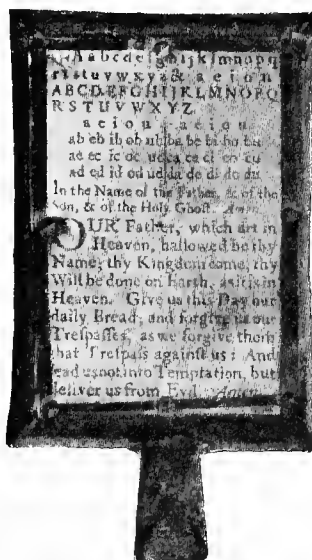 Aabcdefghijklmnopq
rſstuvwxyz& a e i o u
ABCDEFGHIJKLMNOPQ
RSTUVWXYZ.
a e i o u a e i o u
ab eb ib ob ub ba be bi bo bu
ac ec ic oc uc ca ce ci co cu
ad ed id od ud da de di do du
In the Name of the Father, & of the
Son, & of the Holy Ghoſt. Amen.
OUR Father, which art in
Heaven, hallowed be thy
Name; thy Kingdom come, thy
Will be done on Earth, as it is in
Heaven. Give us this Day our
daily Bread; and forgive us our
Treſpaſſes, as we forgive them
that Treſpaſs againſt us: And
lead us not into Temptation, but
deliver us from Evil. Amen.